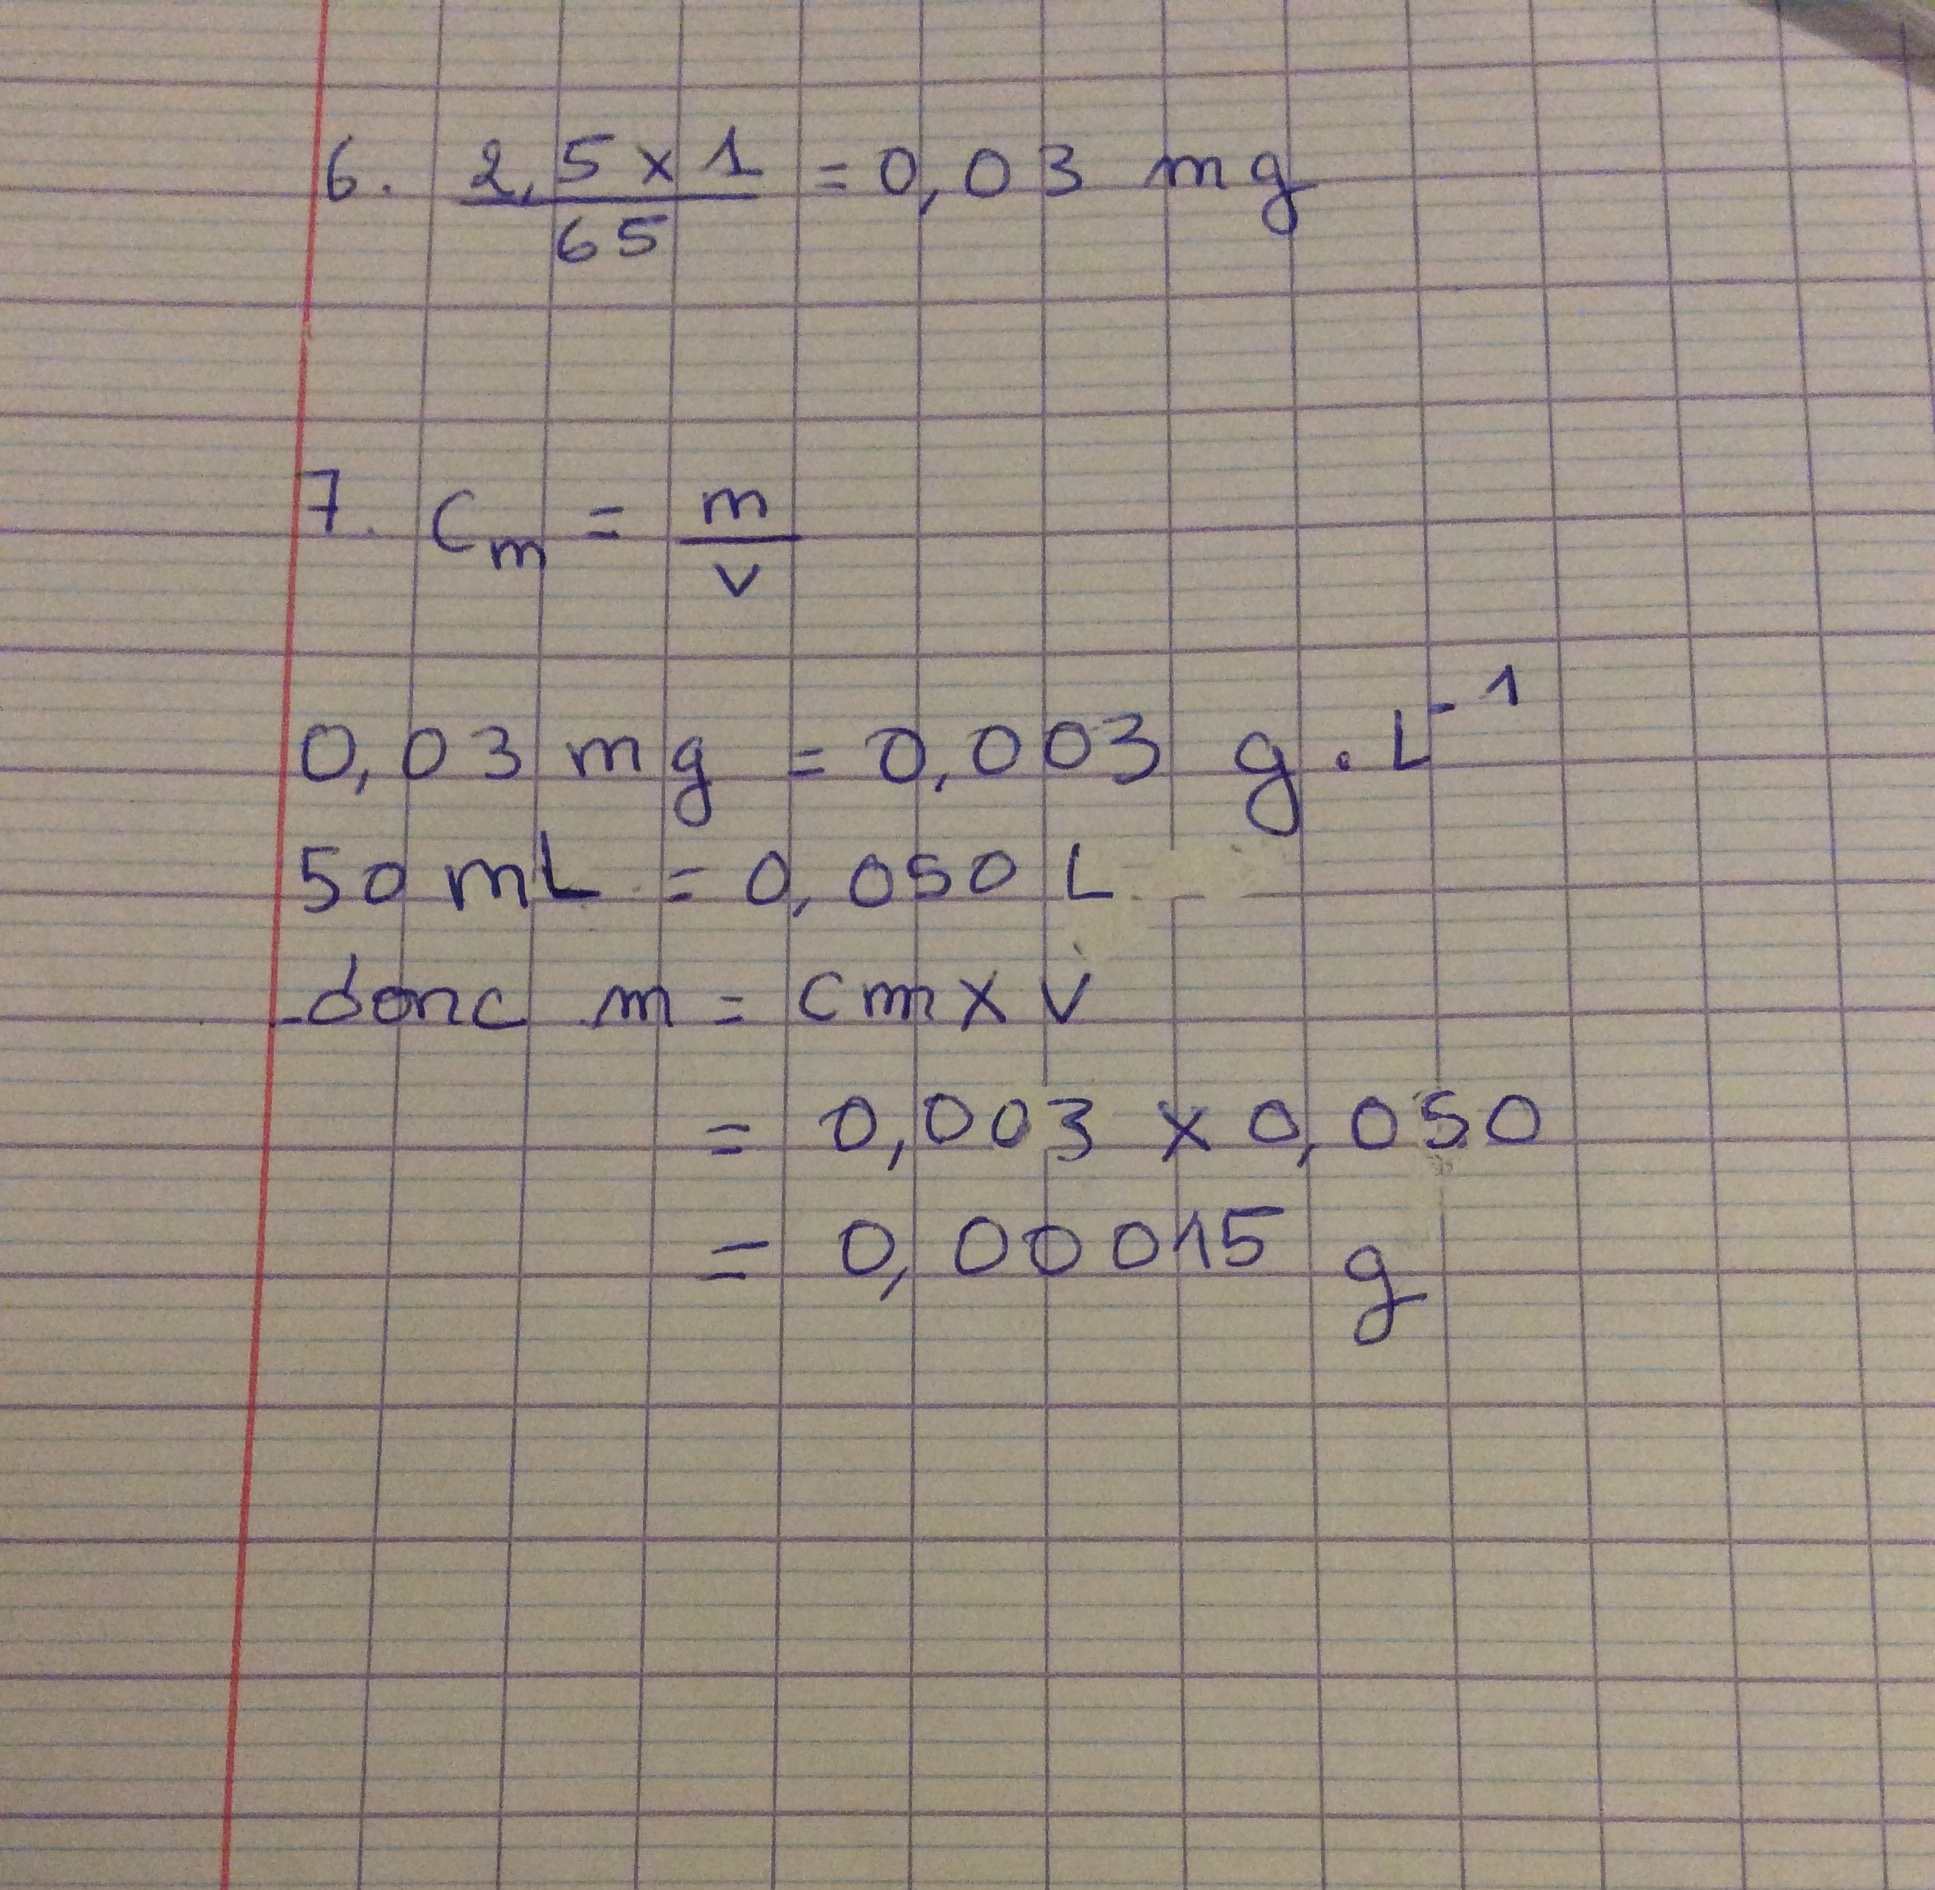 6. 2,5 x 1 / 65 = 0,03 mg
7. Cm = m / v
0,03 mg = 0,003 g . L⁻¹
50 mL = 0,050 L
donc m = cm x v
= 0,003 x 0,050
= 0,00015 g